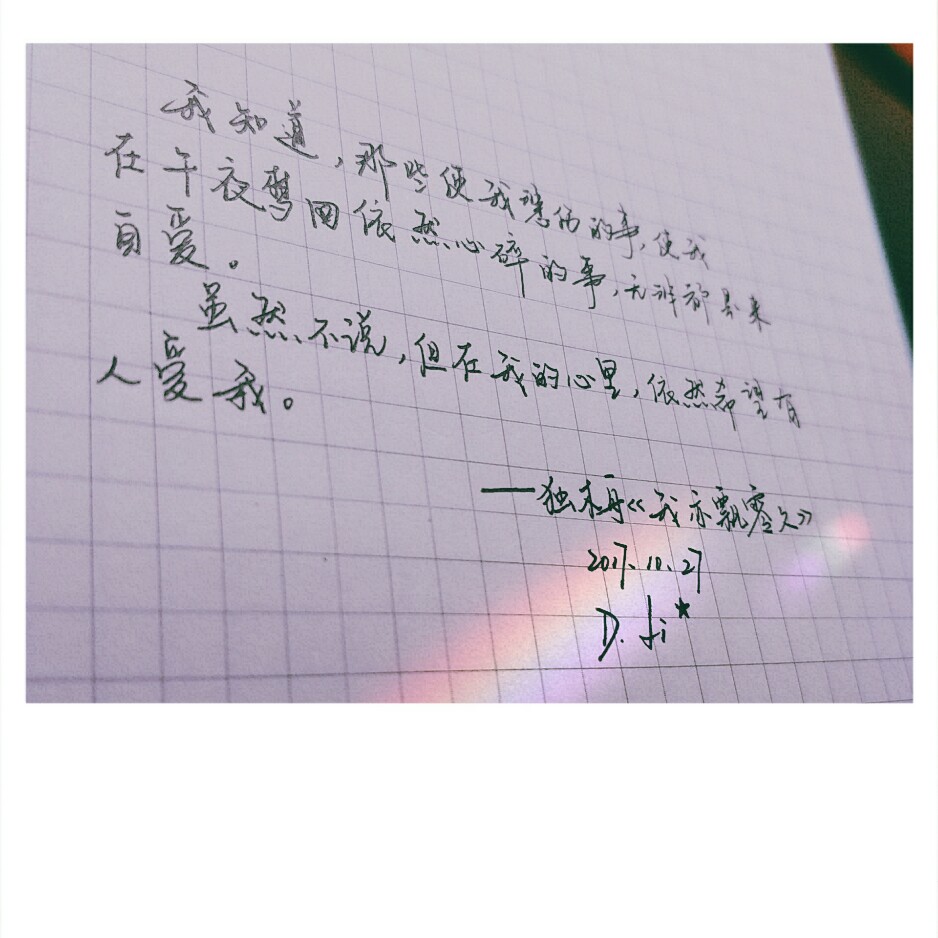 我知道，那些使我悲伤的事，使我
在午夜惊回依然心碎的事，无非都是来
自爱。
虽然不说，但在我的心里，依然希望有
人爱我。
——独木舟《我亦飘零久》
2017.10.27
D. Ji